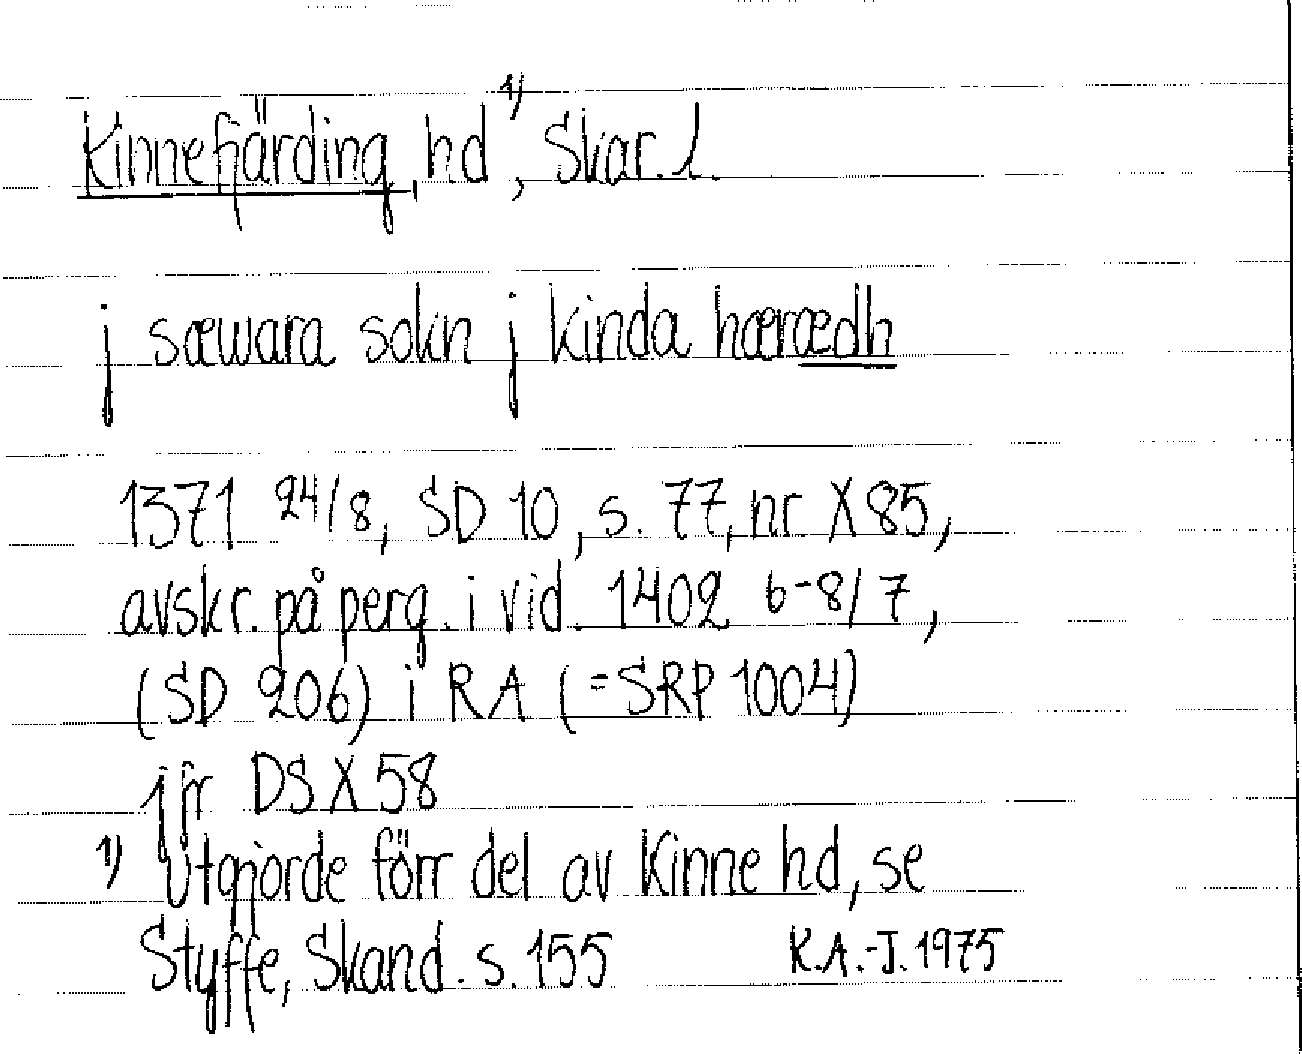 Kinnefjärding, hd 1), Skar. l.
j sæwara sokn j kinda hæræedh
1371 24/8, SD 10, s. 77, nr X 85,
avskr. på perg. i vid. 1402 6-8/7,
(SD 206) i RA (=SRP 1004)
jfr DS X 58
1) Utgjorde förr del av Kinne hd, se
Styffe, Skand. s. 155 K.A.-J. 1975